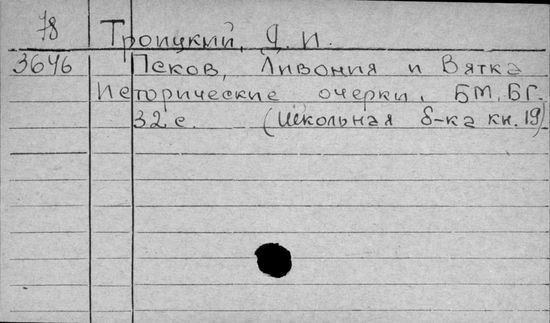 78 Троицкий, Д. И.
3646 Псков, Ливония и Вятка
Исторические очерки. БМ, БГ.
32 с. (Школьная б-ка кн. 19)